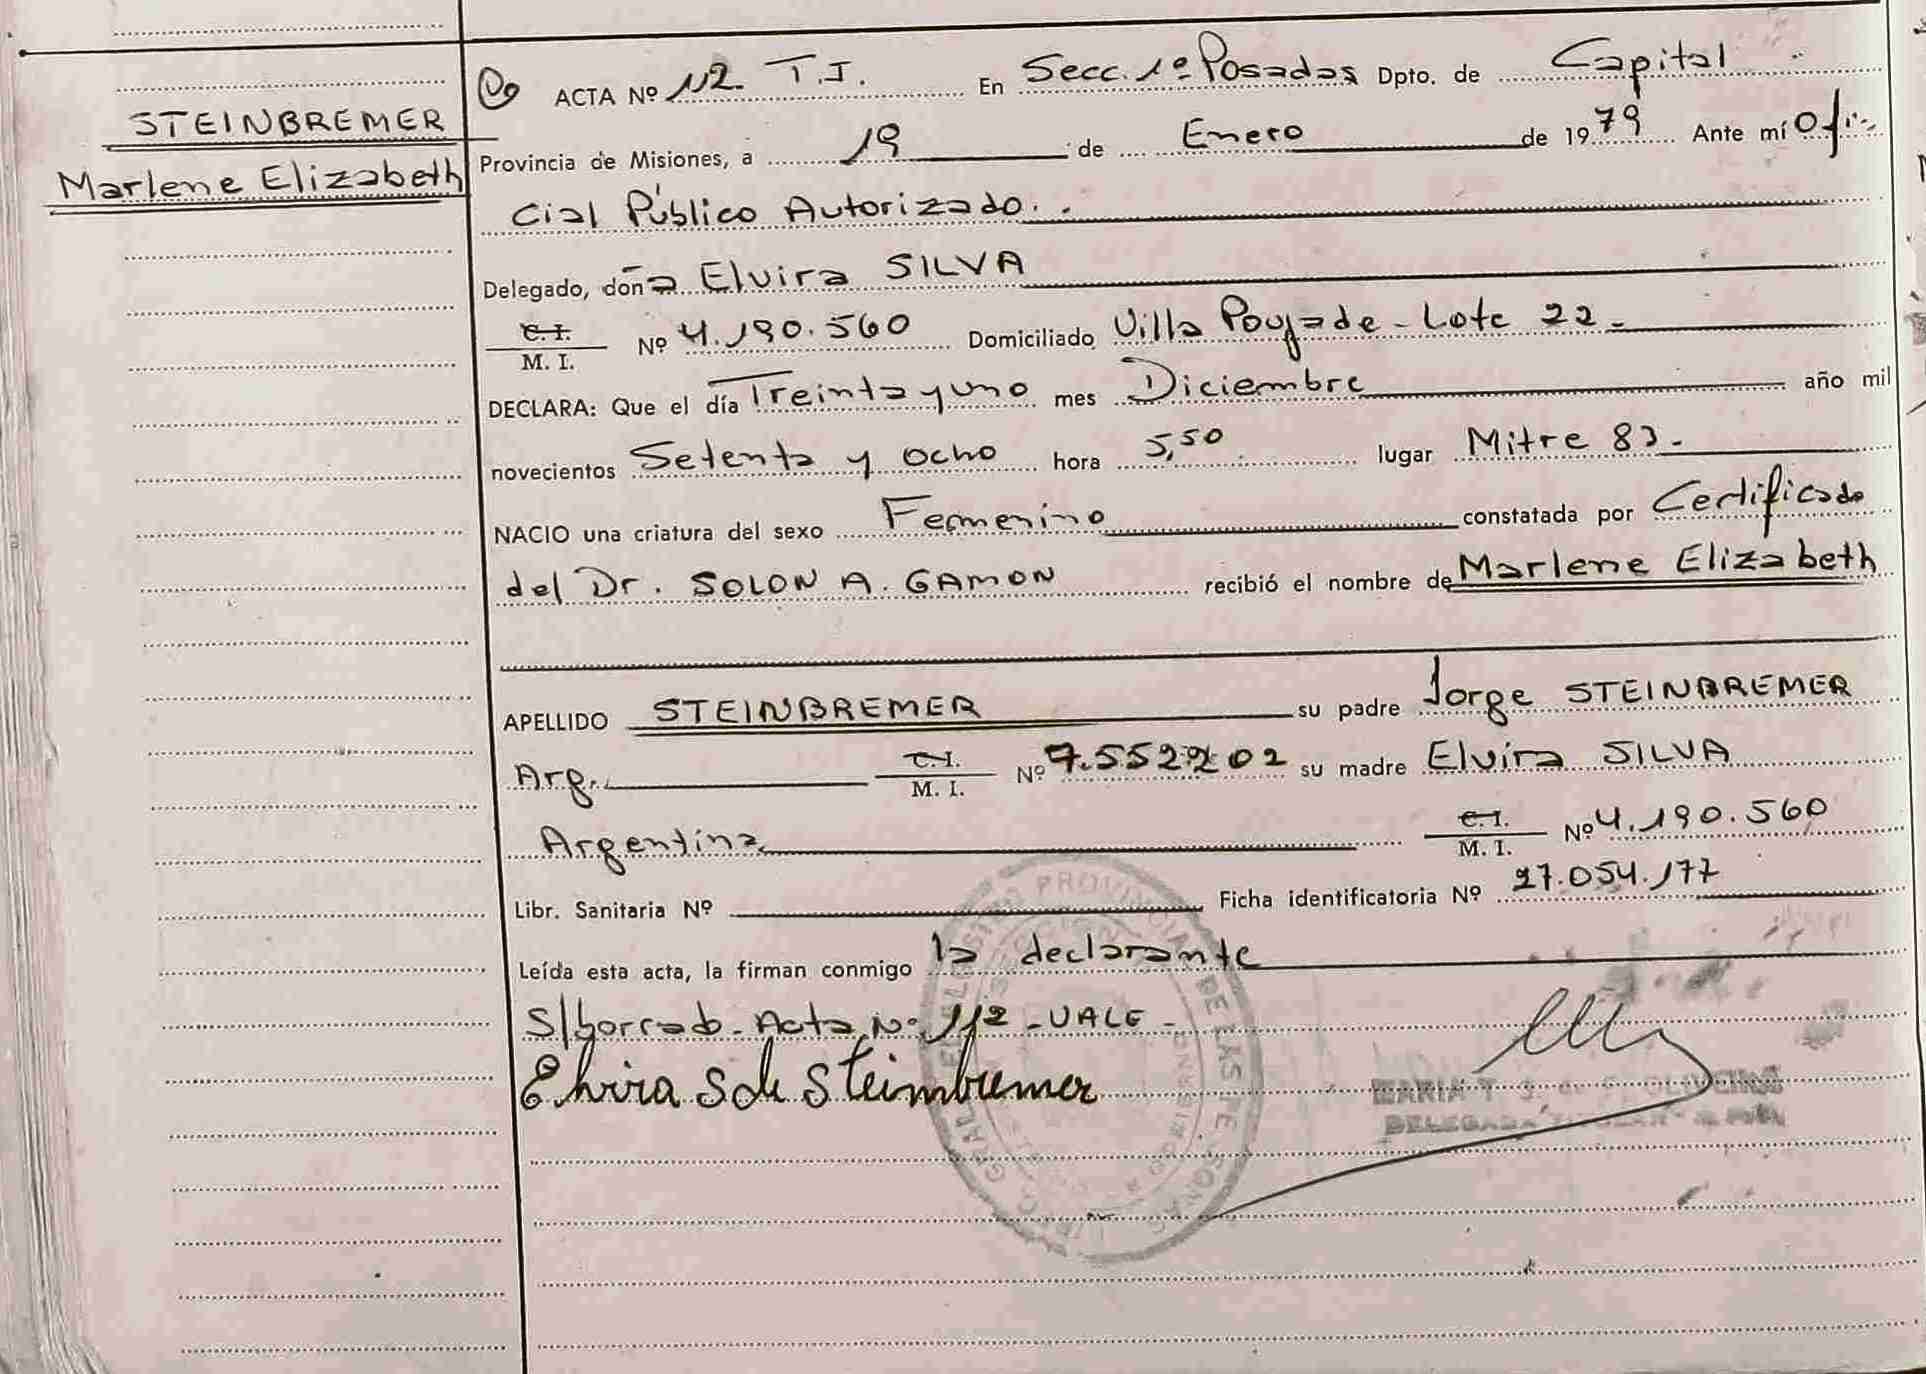 STEINBREMER
Marlene Elizabeth
ACTA Nº 112. T.I. En Secc. 1º Posadas Dpto. de Capital
Provincia de Misiones, a 19 de Enero de 1979 Ante mí Ofi-
cial Público Autorizado.
Delegado, doña Elvira SILVA
C. I.
M. I. Nº 4.190.560 Domiciliado Villa Poujade - Lote 22 -
DECLARA: Que el día Treinta y uno mes Diciembre año mil
novecientos Setenta y ocho hora 5,50 lugar Mitre 83.-
NACIO una criatura del sexo Femenino constatada por Certificado
del Dr. SOLON A. GAMON recibió el nombre de Marlene Elizabeth
APELLIDO STEINBREMER su padre Jorge STEINBREMER
Arg. C.I.
M. I. Nº 7.552.202 su madre Elvira SILVA
Argentina C. I.
M. I. Nº 4.190.560
Libr. Sanitaria Nº Ficha identificatoria Nº 27.054.177
Leída esta acta, la firman conmigo la declarante
S/borrado - Acta Nº 112 - VALE -
Elvira S de Steimbremer
MARIA T. S. de
DELEGADA TITULAR
PROVINCIAL DE LAS PERSONAS